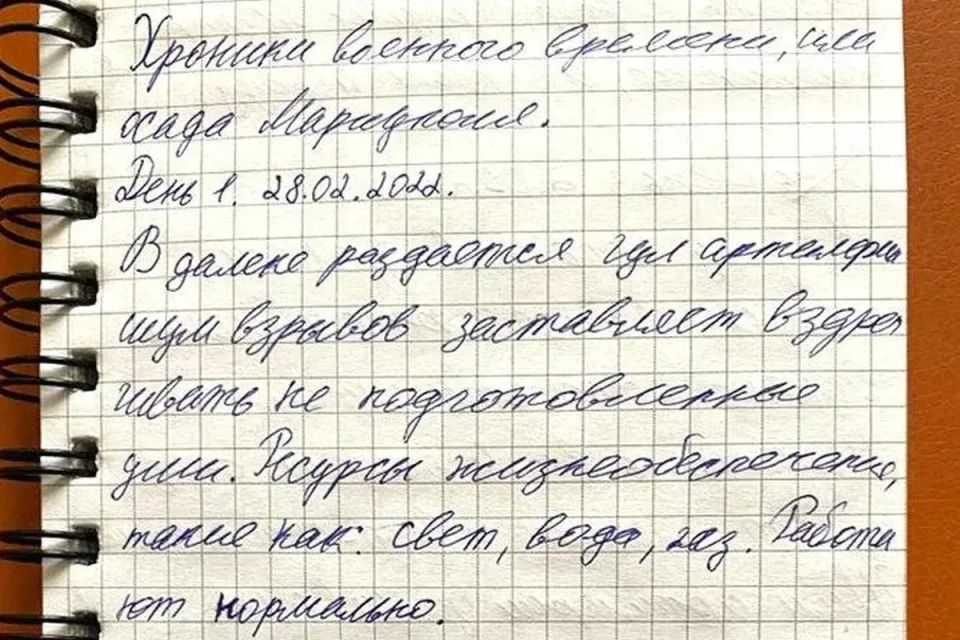 Хроники военного времени, или
осада Мариуполя.
День 1. 28.02.2022.
В далеке раздается гул артилерии
шум взрывов заставляет вздра
гивать не подготовленные
души. Ресурсы жизнеобеспечения,
такие как: свет, вода, газ. Работа
ют нормально.